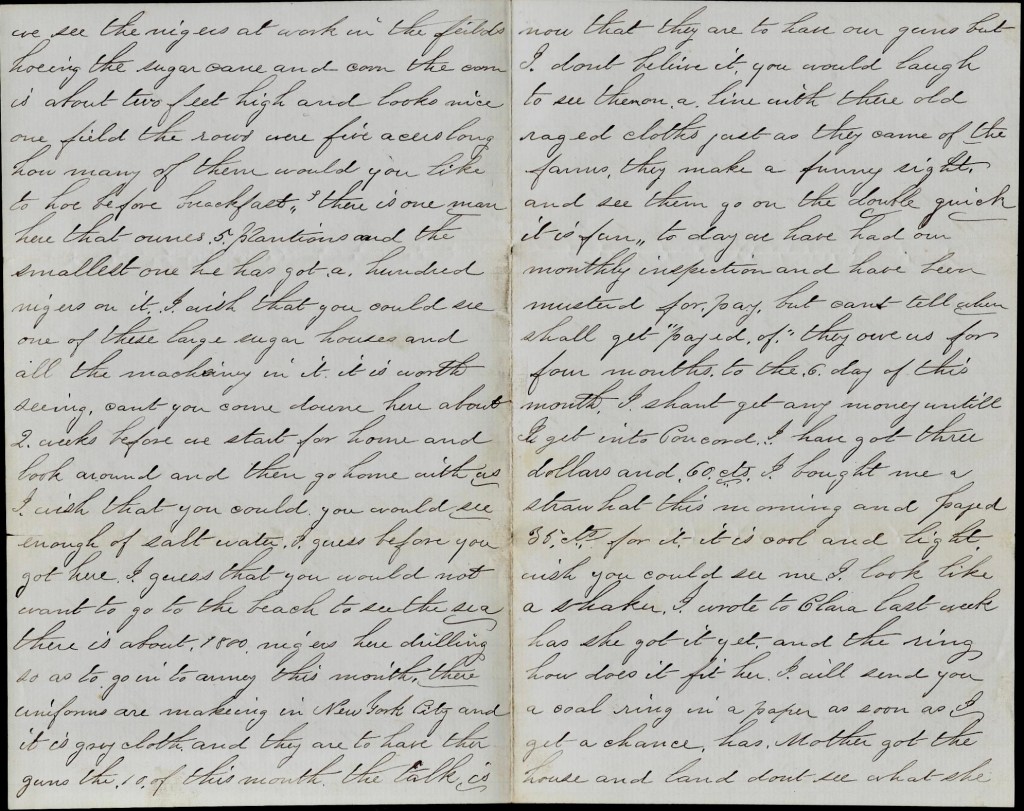 we see the nigers at work in the feilds
hoeing the sugar cane and corn the corn
is about two feet high and looks nice
one field the rows were five acers long
how many of them would you like
to hoe before breackfast,, ? there is one man
here that ownes .5. plantions and the
smallest one he has got .a. hundred
nigers on it. I. wish that you could see
one of these large sugar houses and
all the machiney in it. it is worth
seeing, cant you come downe here about
2. weeks before we start for home and
look around and then go home with us
I. wish that you could. you would see
enough of salt water. I. guess before you
got here. I. guess that you would not
want to go to the beach to see the sea
there is about .1800. nigers here drilling
so as to go in to armey this month. there
uniforms are makeing in New York City and
it is grey cloth, and they are to have ther
guns the .10. of this month. the talk is
now that they are to have our guns but
I. dont belive it. you would laugh
to see them on .a. line with there old
raged cloths just as they came of the
farms, they make a funny sight.
and see them go on the double quick
it is fun,, to day we have had our
monthly inspection and have been
musterd for pay, but cant tell when
shall get "payed. of." they owe us for
four months. to the .6. day of this
month. I. shant get any money untill
I. get into Concord. I. have got three
dollars and .60. cts. I. bought me a
straw hat this morning and payed
35. cts. for it. it is cool and light.
wish you could see me I. look like
a shaker. I. wrote to Clara last week
has she got it yet. and the ring
how does it fit her. I. will send you
a coal ring in a paper as soon as I
get a chance. has. Mother got the
house and land dont see what she